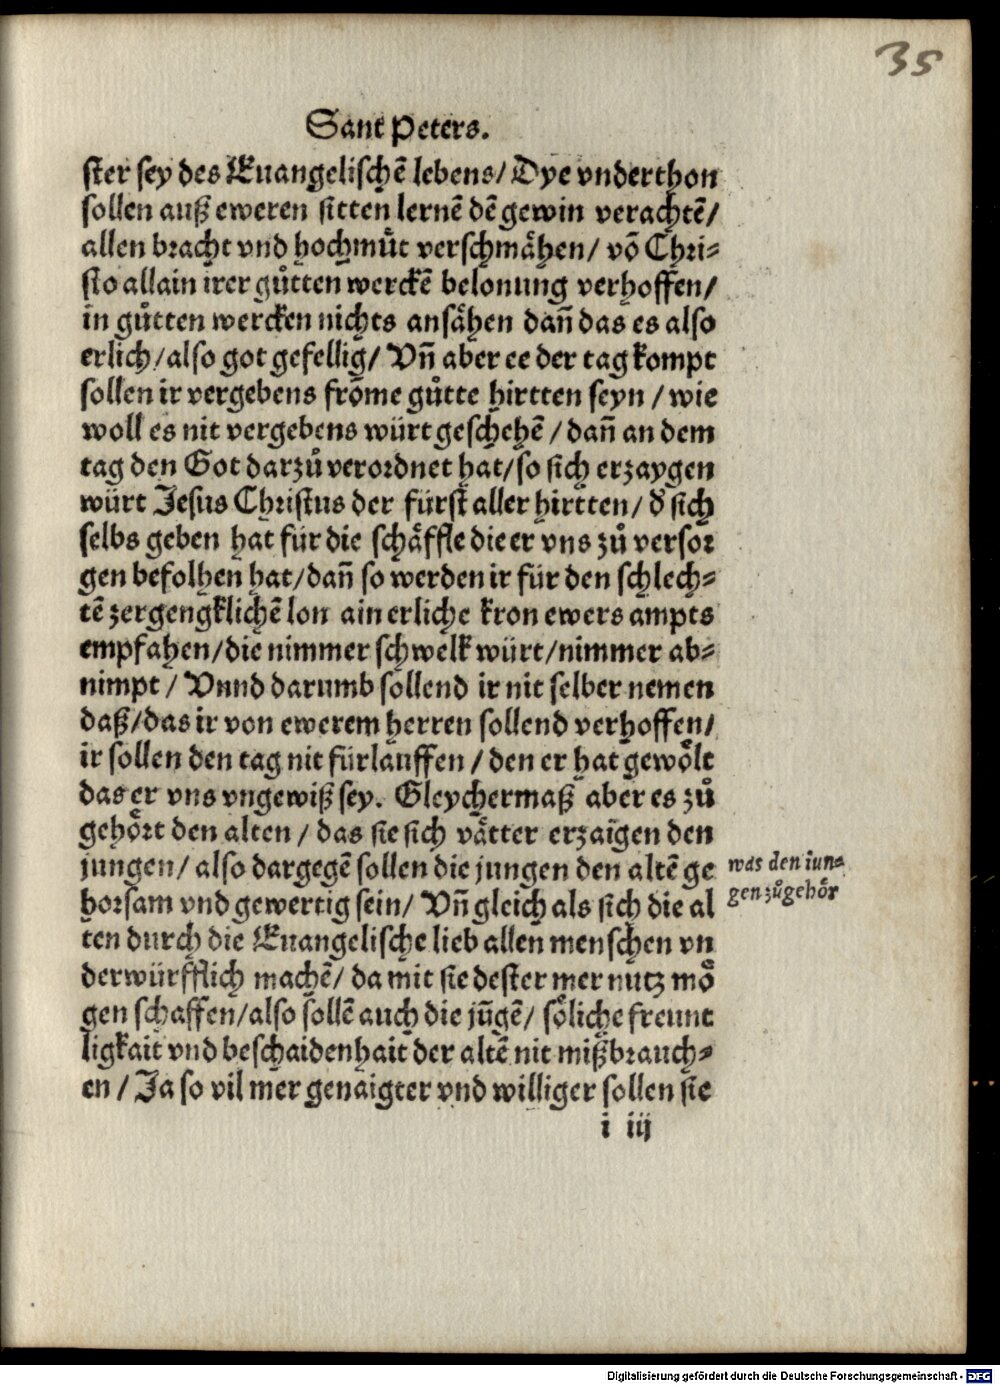 35
Sant Peters.
ster sey des Euangelischē lebens/ Dye vnderthon
sollen auß eweren sitten lernē dē gewin verachtē/
allen bracht vnd hochmůt verschmähen/ vō Chri⸗
sto allain irer gůtten werckē belonung verhoffen/
in gůtten wercken nichts ansähen dañ das es also
erlich/also got gefellig/ Vñ aber ee der tag kompt
sollen ir vergebens frōme gůtte hirtten seyn / wie
woll es nit vergebens würt geschehē / dañ an dem
tag den Got darzů verordnet hat/so sich erzaygen
würt Jesus Christus der fürst aller hirtten/ d̄ sich
selbs geben hat für die schäffle die er vns zů versor
gen befolhen hat/dañ so werden ir für den schlech⸗
tē zergengklichē lon ain erliche kron ewers ampts
empfahen/die nimmer schwelk würt/nimmer ab⸗
nimpt / Vnnd darumb sollend ir nit selber nemen
daß/das ir von ewerem herren sollend verhoffen/
ir sollen den tag nit fürlauffen / den er hat gewölt
das er vns vngewiß sey. Gleychermaß aber es zů
gehört den alten / das sie sich vätter erzaigen den
jungen/ also dargegē sollen die jungen den altē ge
horsam vnd gewertig sein/ Vñ gleich als sich die al
ten durch die Euangelische lieb allen menschen vn
derwürfflich machē/ da mit sie dester mer nutz mö
gen schaffen/also sollē auch die jūgē/ söliche freunt
ligkait vnd beschaidenhait der altē nit mißbrauch⸗
en / Ja so vil mer genaigter vnd williger sollen sie
was den iun⸗
gen zůgehör
i iij
Digitalisierung gefördert durch die Deutsche Forschungsgemeinschaft - DFG